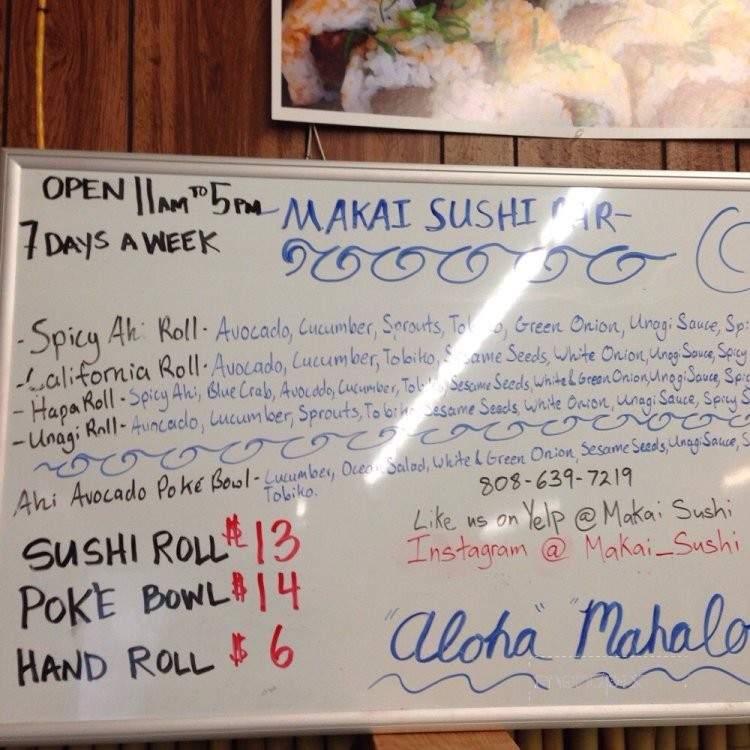 OPEN 11AM TO 5PM
7 DAYS A WEEK
-MAKAI SUSHI BAR-
- Spicy Ahi Roll - Avocado, Cucumber, Sprouts, Tobiko, Green Onion, Unagi Sauce, Spi
- California Roll - Avocado, Cucumber, Tobiko, Sesame Seeds, White Onion, Unagi Sauce, Spicy
- Hapa Roll - Spicy Ahi, Blue Crab, Avocado, Cucumber, Tobiko, Sesame Seeds, White & Green Onion, Unagi Sauce, Spic
- Unagi Roll - Avocado, Cucumber, Sprouts, Tobiko, Sesame Seeds, White Onion, Unagi Sauce, Spicy S
Ahi Avocado Poké Bowl - Cucumber, Ocean Salad, White & Green Onion, Sesame Seeds, Unagi Sauce, S
Tobiko.
808-639-7219
Like us on Yelp @ Makai Sushi
Instagram @ Makai_Sushi
SUSHI ROLL $13
POKÉ BOWL $14
HAND ROLL $6
"Aloha" "Mahalo